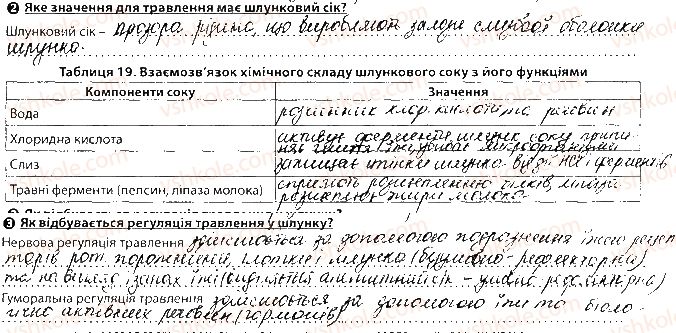 ❷ Яке значення для травлення має шлунковий сік?
Шлунковий сік – прозора рідина, що виробляют залози слизової оболонки
шлунка.
Таблиця 19. Взаємозв'язок хімічного складу шлункового соку з його функціями
Компоненти соку Значення
Вода розчинник хлор. кислоти та речовин
Хлоридна кислота активує ферменти шлунк соку, припи-
няє гниття їжі, убиває мікроорганізми
Слиз захищає стінки шлунка від дії HCl і ферментів
Травні ферменти (пепсин, ліпаза молока) сприяють розщепленню білків, ліпаза
розщеплює жири молока
❸ Як відбувається регуляція травлення у шлунку?
Нервова регуляція травлення здійснюється за допомогою подразнення їжею рецеп
торів рот. порожнини, глотки і шлунка (безумовно-рефлекторна)
та на вигляд і запах їжі (виділяється апетитний сік – умовно рефлекторна)
Гуморальна регуляція травлення здійснюється за допомогою їжі та біоло-
гічно активних речовин (гормонів)